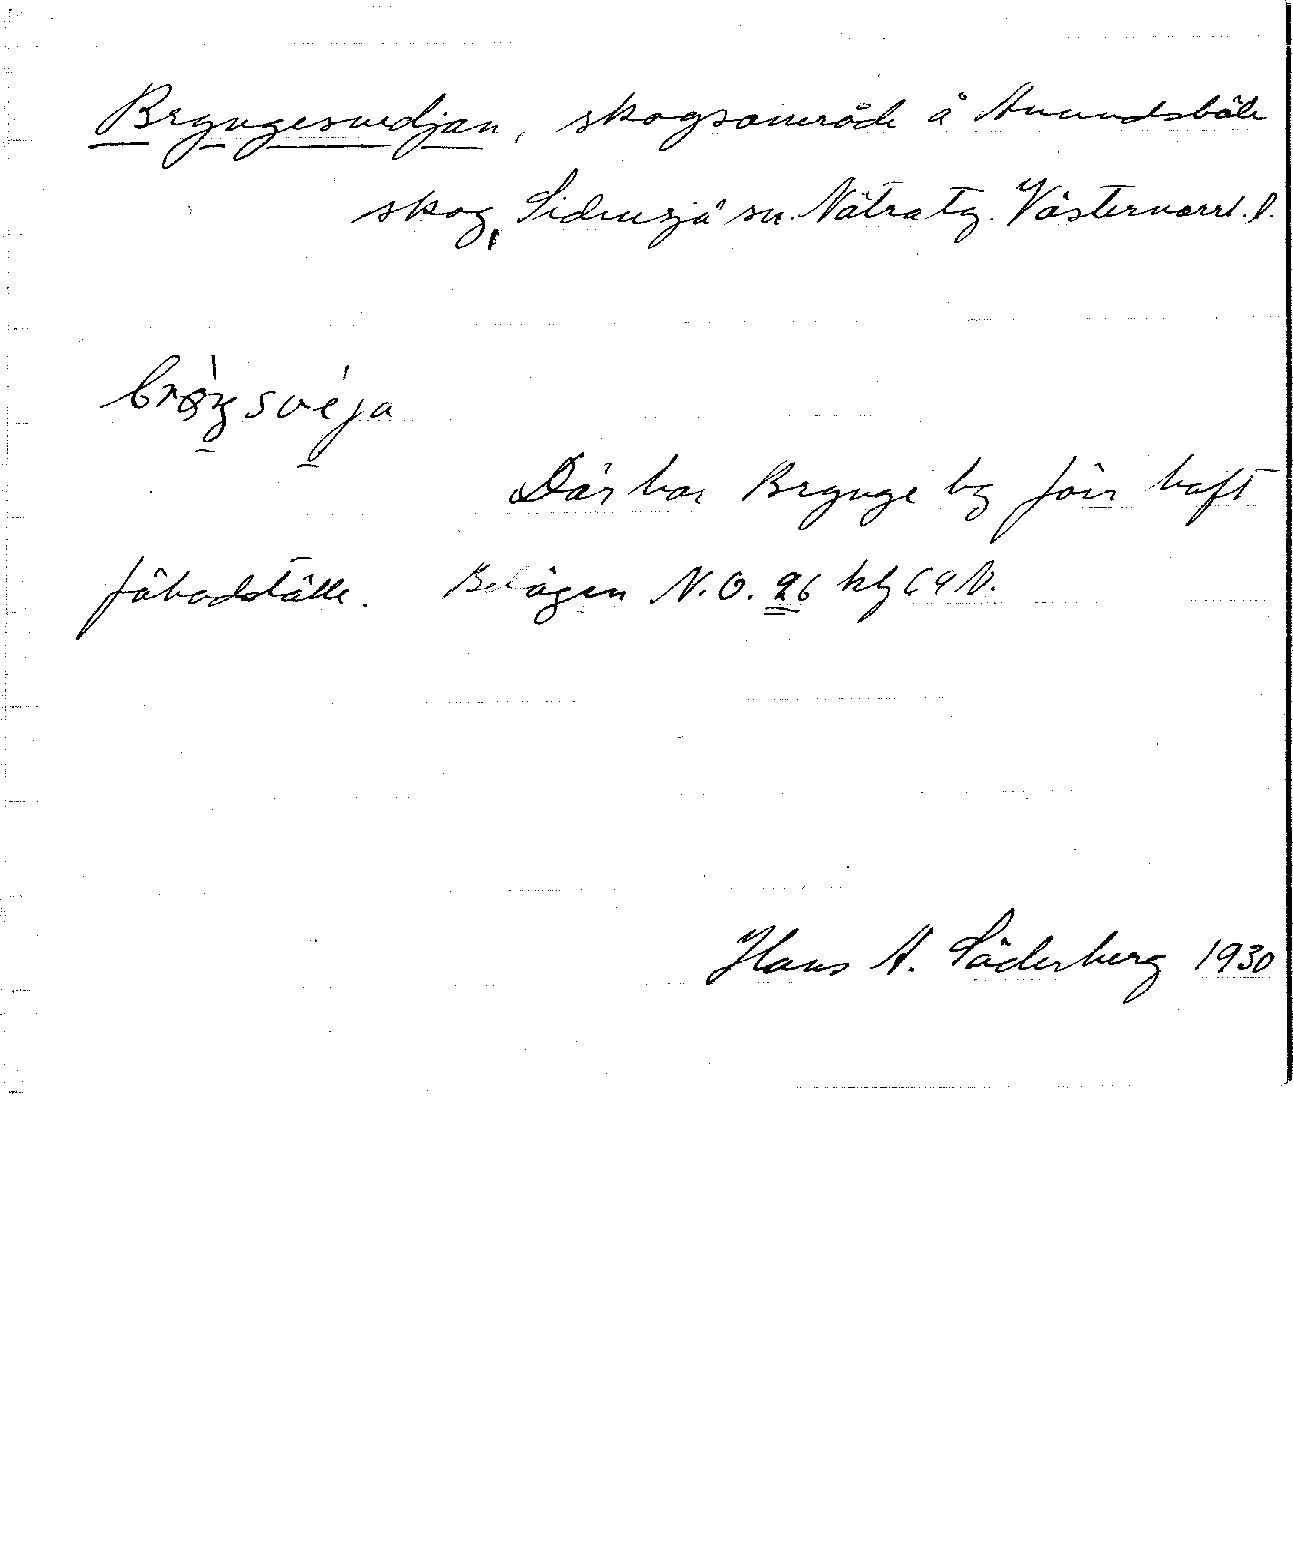 Bryngesvedjan, skogsområde å Anundsböle
skog, Sidensjö sn. Nätra tg. Västernorrl. l.
Där har Brynge by förr haft
fäbodställe. Belägen N.O. 26
Hans A. Söderberg 1930